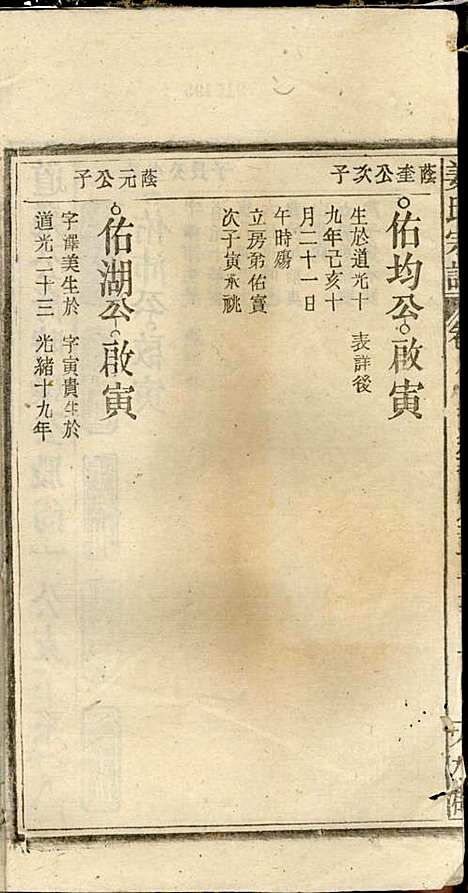 姜氏宗譜
蔭奎公次子
佑均公 啟寅
生於道光十 表詳後
九年己亥十
月二十一日
午時殤
立房弟佑實
次子寅承祧
蔭元公子
佑湖公 啟寅
字譯美生於 字寅貴生於
道光二十三 光緒十九年